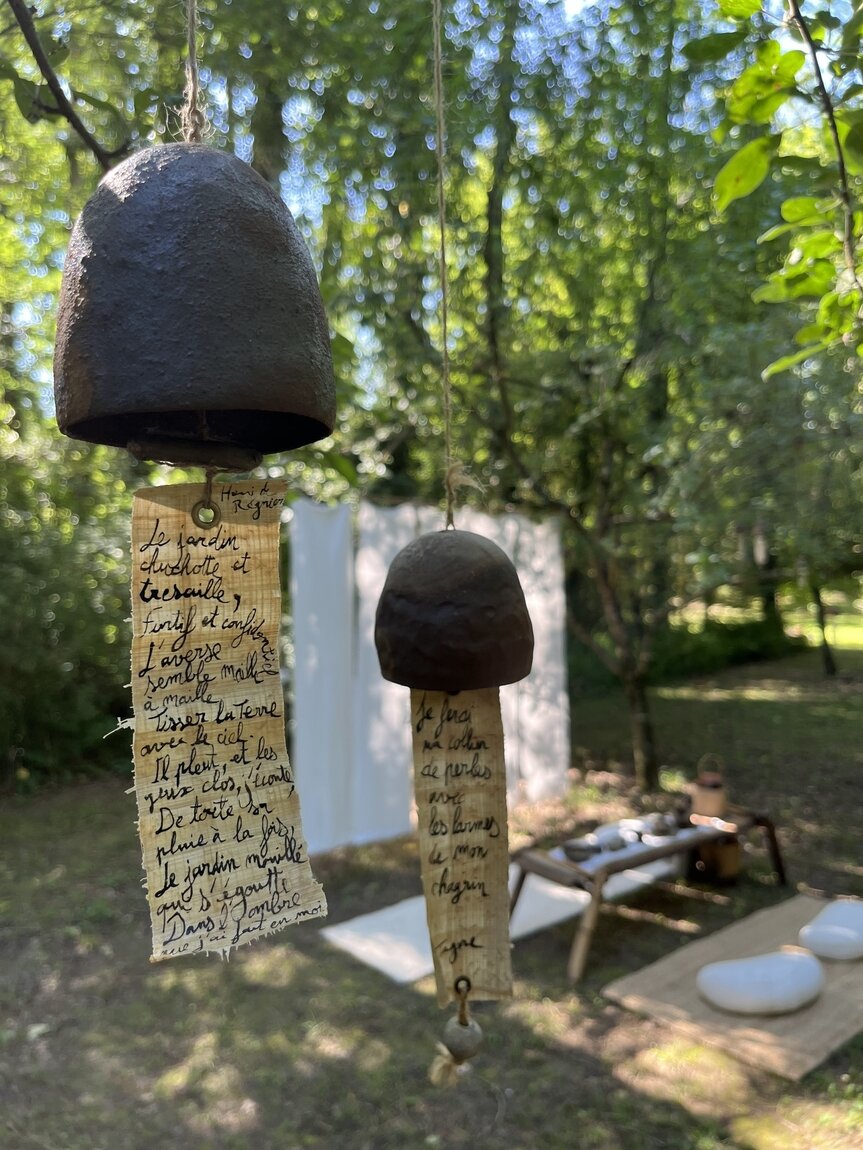 Henri de
Régnier
Le jardin
chuchotte et
tresaille,
Furtif et confidentiel
L'averse
semble maille
à maille
Tisser la Terre
avec le ciel.
Il pleut, et les
yeux clos, j'écoute,
De toute son
pluie à la fois,
Le jardin mouillé
qui s'égoutte
Dans l'ombre
que j'ai fait en moi
Je ferai
un collier
de perles
avec
les larmes
de mon
chagrin